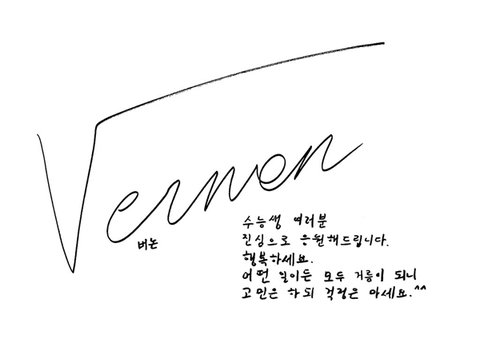 Vernon
버논
수능생 여러분
진심으로 응원해드립니다.
행복하세요.
어떤 일이든 모두 거름이 되니
고민은 하되 걱정은 마세요.^^